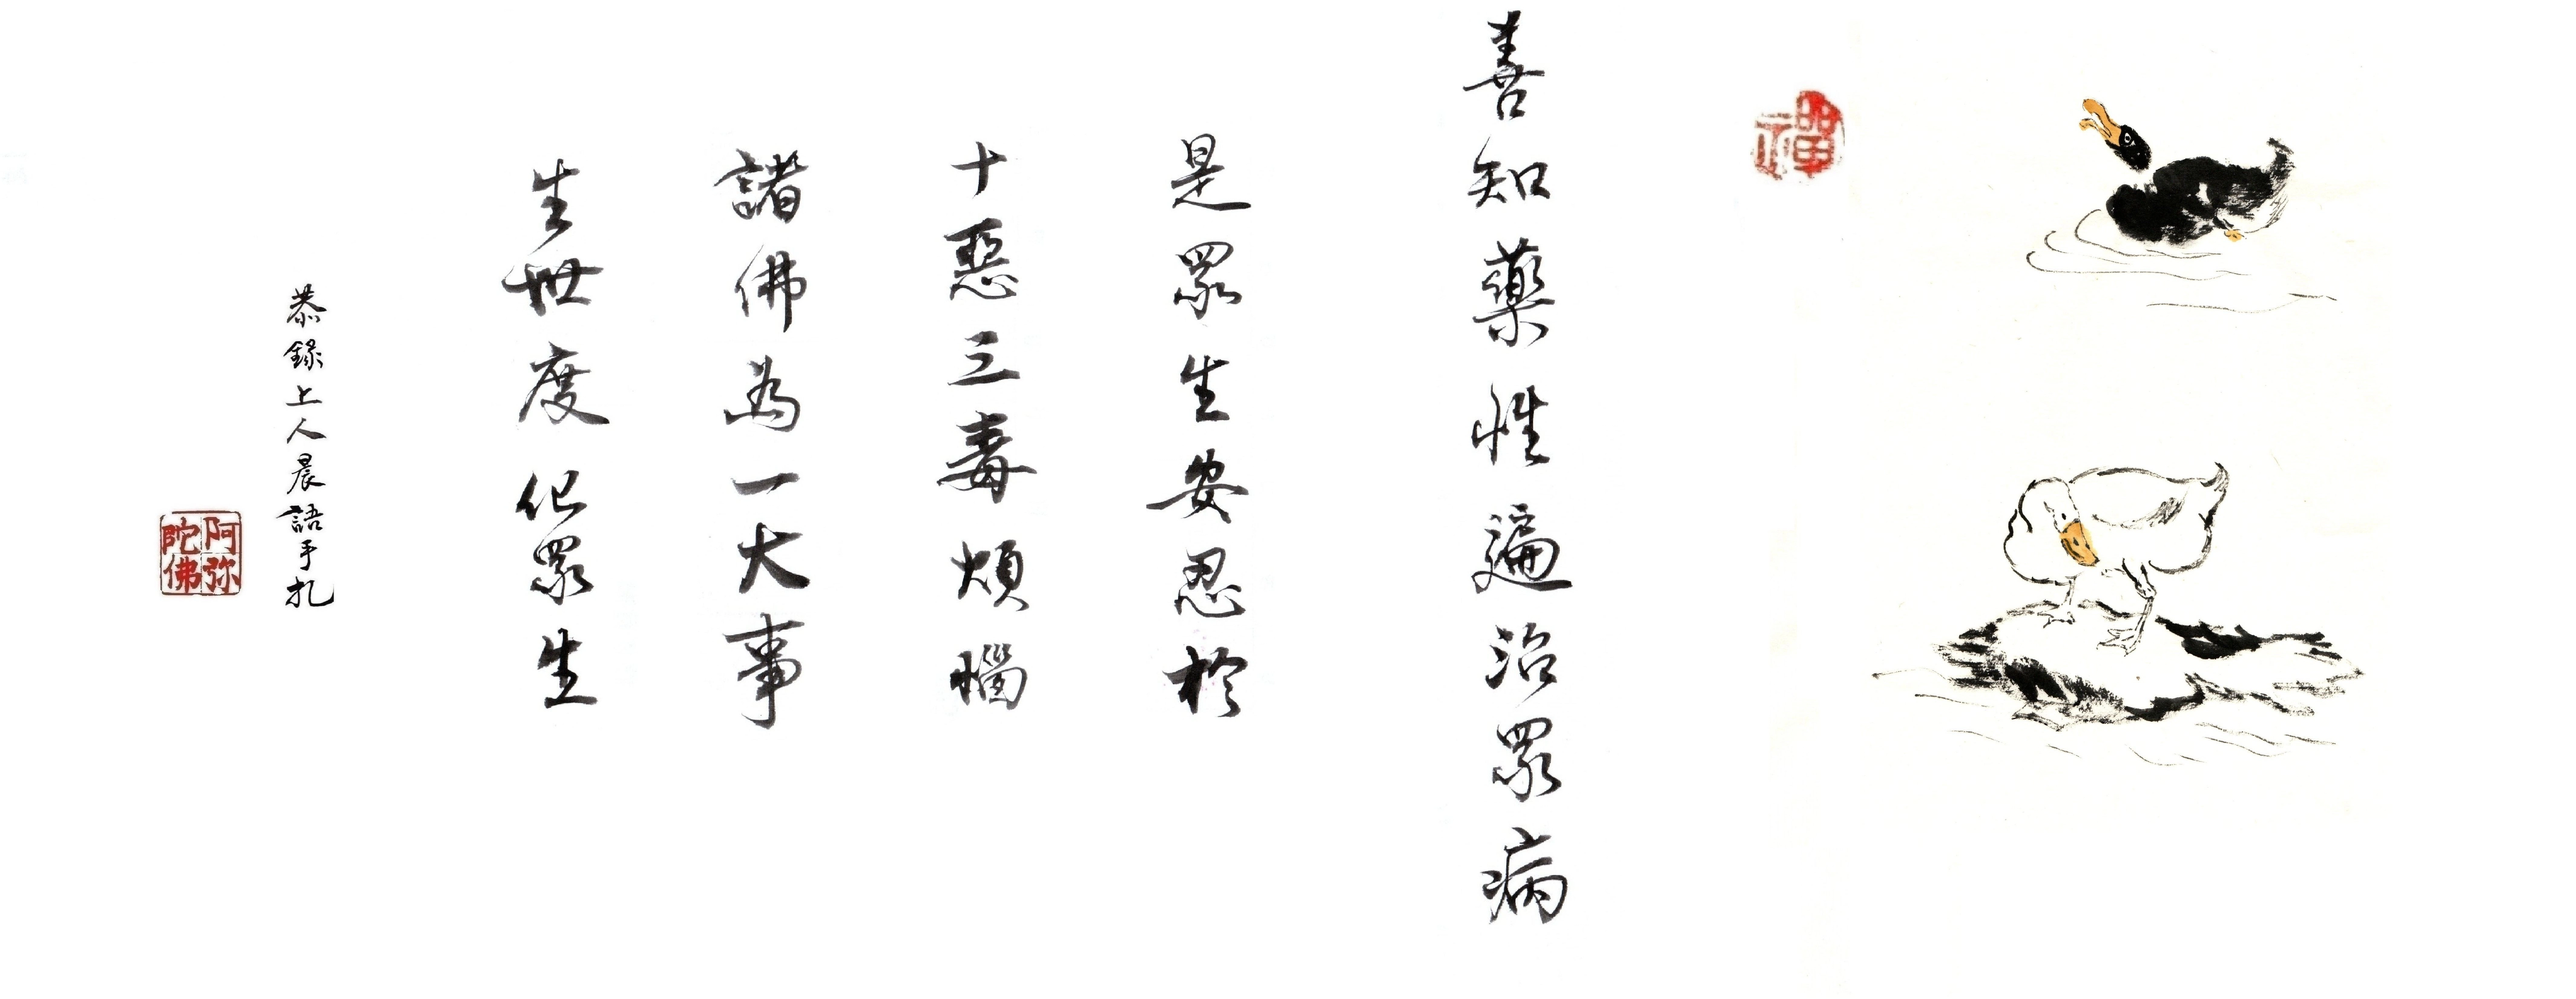 禪
善知藥性遍治眾病
是眾生安忍於
十惡三毒煩惱
諸佛為一大事
生世度化眾生
恭錄上人晨語手札
阿弥
陀佛